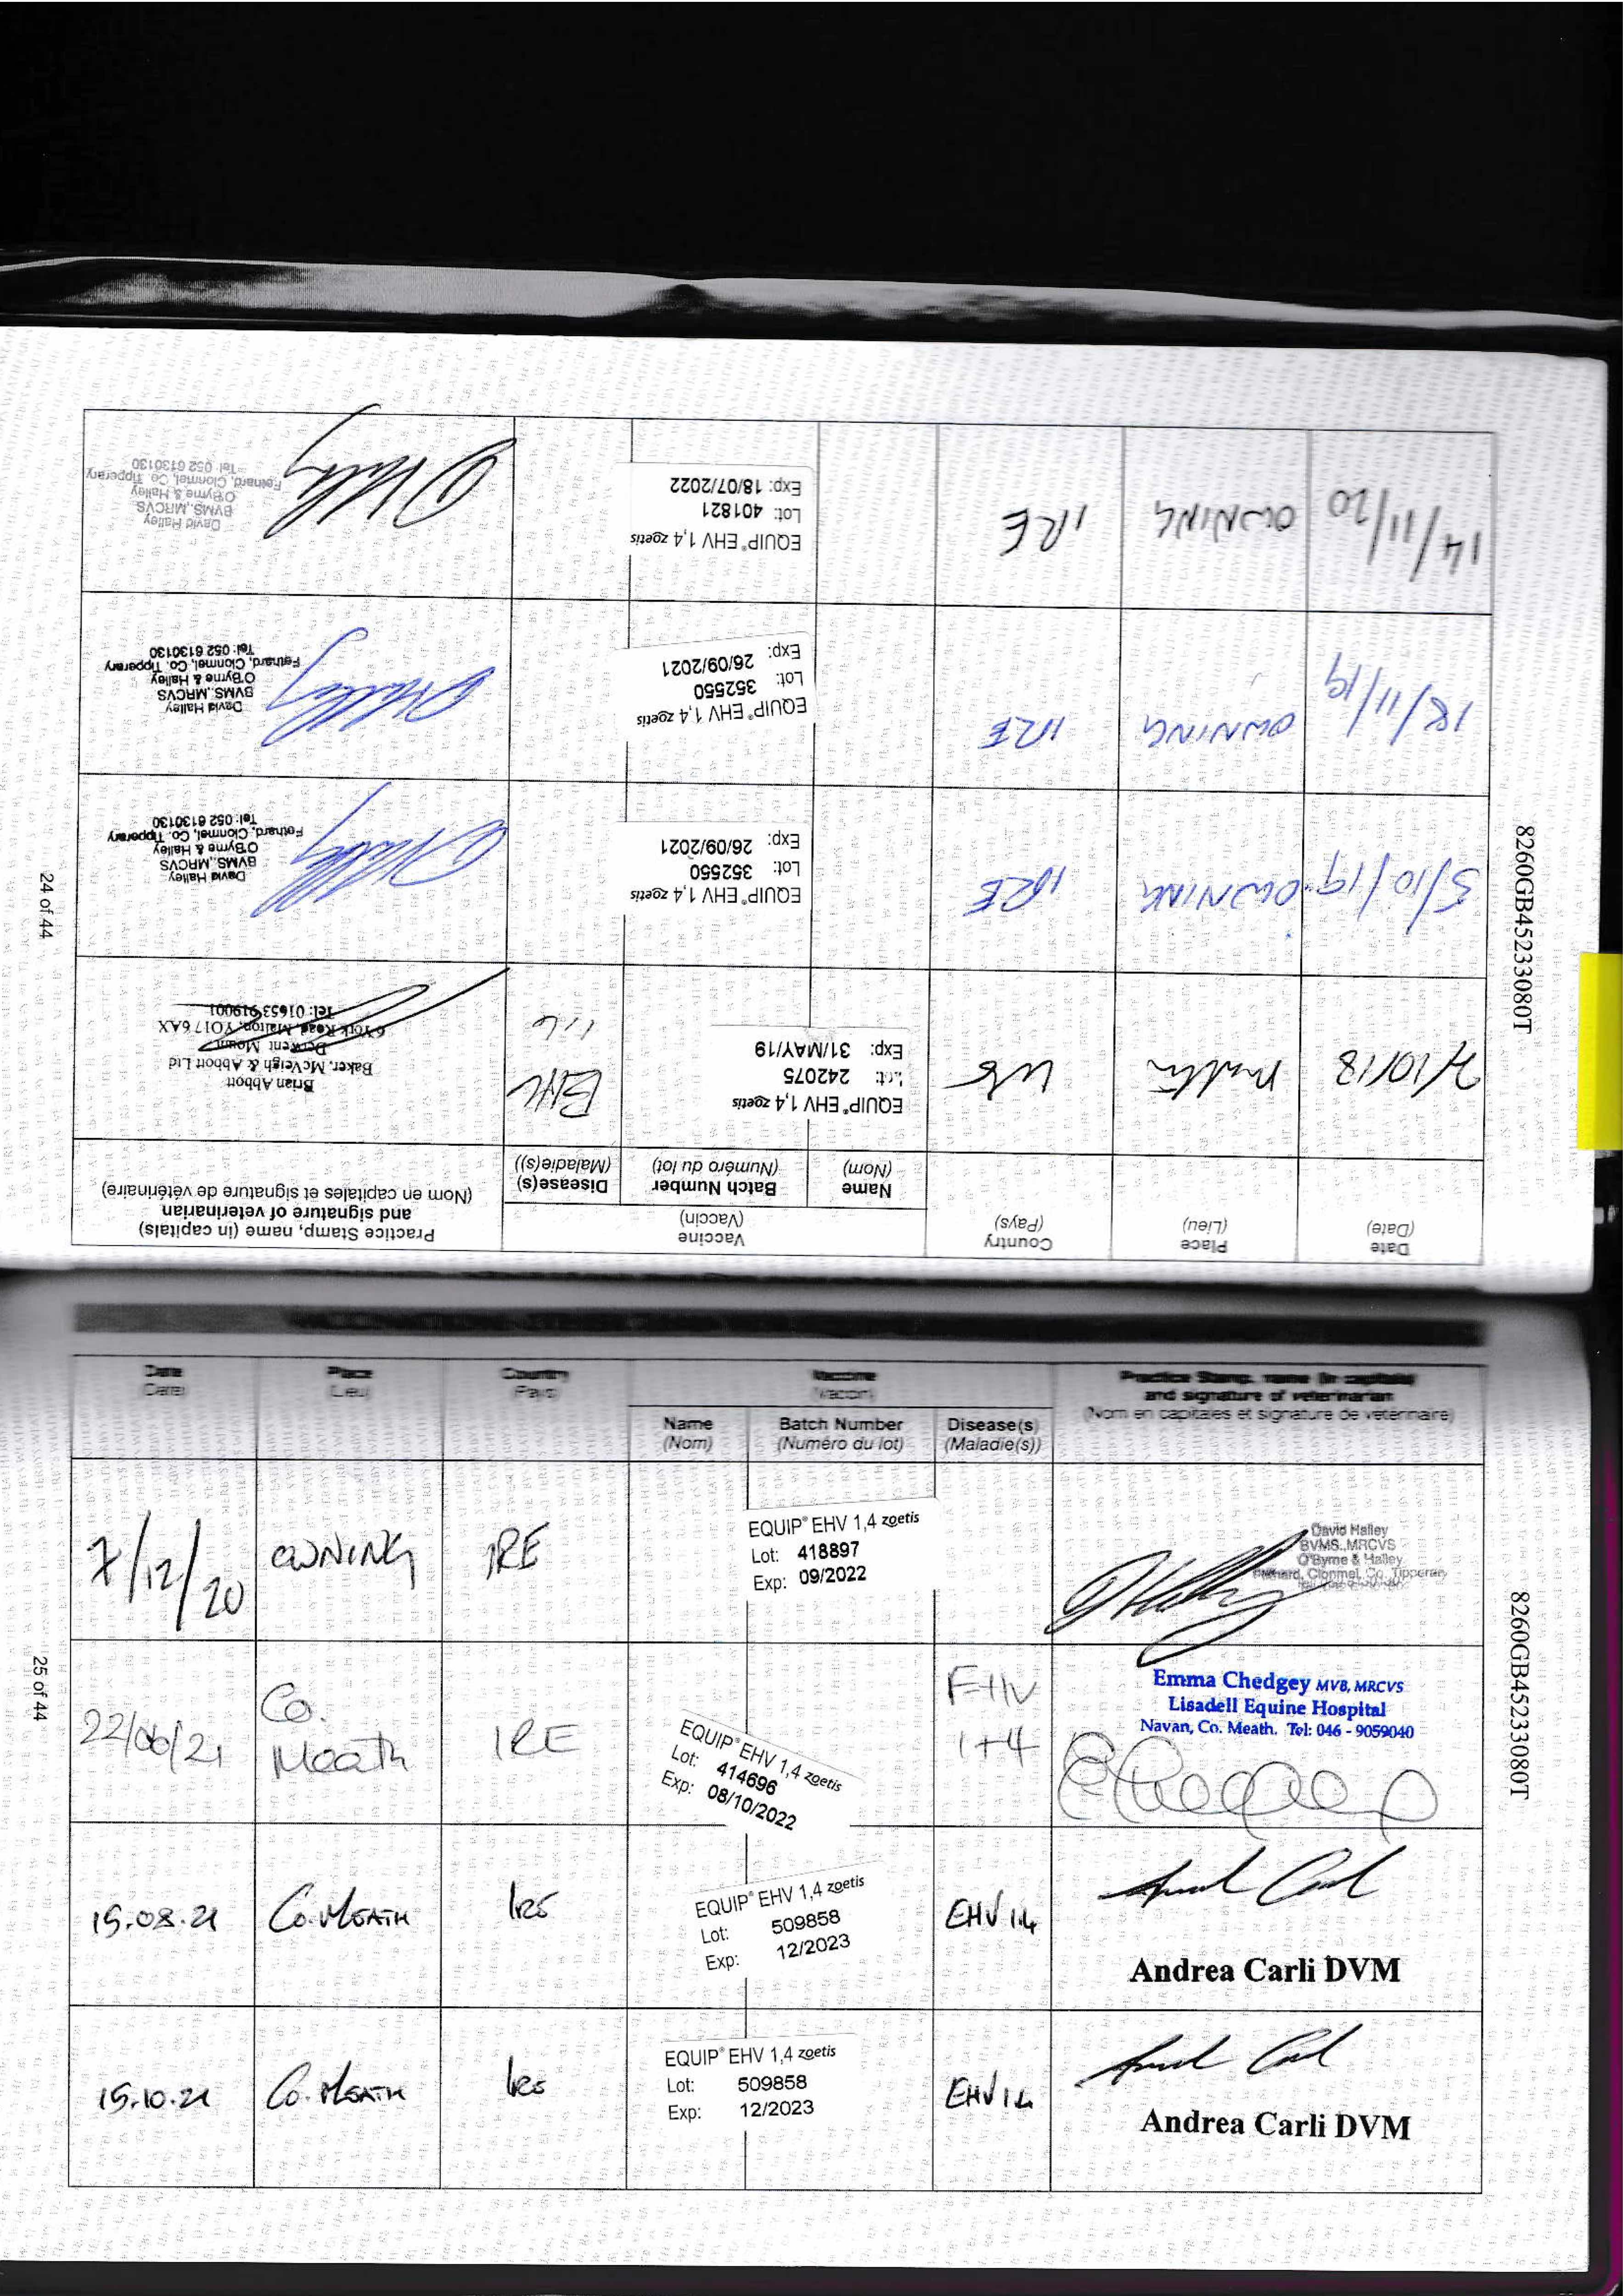 Date
(Date)
Place
(Lieu)
Country
(Pays)
Vaccine
(Vaccin)
Name
(Nom)
Batch Number
(Numéro du lot)
Disease(s)
(Maladie(s))
Practice Stamp, name (in capitals)
and signature of veterinarian
(Nom en capitales et signature de vétérinaire)
2/10/18
UK
EQUIP® EHV 1,4 zoetis
Lot: 242075
Exp: 31/MAY/19
EHV
1,4
Brian Abbott
Baker, McVeigh & Abbott Ltd
Derwent Mount
6 York Road, Malton, YO17 6AX
Tel: 01653 919001
5/10/19
OWNING
IRE
EQUIP® EHV 1,4 zoetis
Lot: 352550
Exp: 26/09/2021
David Halley
BVMS.,MRCVS
O'Byrne & Halley
Fethard, Clonmel, Co. Tipperary
Tel: 052 6130130
18/11/19
OWNING
IRE
EQUIP® EHV 1,4 zoetis
Lot: 352550
Exp: 26/09/2021
David Halley
BVMS.,MRCVS
O'Byrne & Halley
Fethard, Clonmel, Co. Tipperary
Tel: 052 6130130
14/11/20
OWNING
IRE
EQUIP® EHV 1,4 zoetis
Lot: 401821
Exp: 18/07/2022
David Halley
BVMS.,MRCVS
O'Byrne & Halley
Fethard, Clonmel, Co. Tipperary
Tel: 052 6130130
24 of 44
8260GB45233080T
Date
(Date)
Place
(Lieu)
Country
(Pays)
Vaccine
(Vaccin)
Name
(Nom)
Batch Number
(Numéro du lot)
Disease(s)
(Maladie(s))
Practice Stamp, name (in capitals)
and signature of veterinarian
(Nom en capitales et signature de vétérinaire)
7/12/20
OWNING
IRE
EQUIP® EHV 1,4 zoetis
Lot: 418897
Exp: 09/2022
David Halley
BVMS.,MRCVS
O'Byrne & Halley
Fethard, Clonmel, Co. Tipperary
22/06/21
Co.
Meath
IRE
EQUIP® EHV 1,4 zoetis
Lot: 414696
Exp: 08/10/2022
EHV
1+4
Emma Chedgey MVB, MRCVS
Lisadell Equine Hospital
Navan, Co. Meath. Tel: 046 - 9059040
15.08.21
Co. MEATH
IRE
EQUIP® EHV 1,4 zoetis
Lot: 509858
Exp: 12/2023
EHV 1.4
Andrea Carli DVM
15.10.21
Co. MEATH
IRE
EQUIP® EHV 1,4 zoetis
Lot: 509858
Exp: 12/2023
EHV 1.4
Andrea Carli DVM
25 of 44
8260GB45233080T